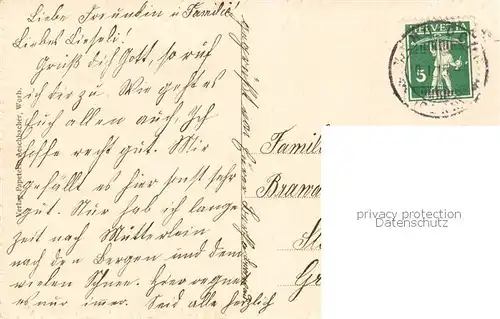 Liebe Freundin u Familie!
Liebes Lieseli!
Grüß dich Gott, so ruf
ich dir zu. Wie geht es
Euch allen auch. Ich
hoffe recht gut. Mir
gefällt es hier sonst sehr
gut. Nur hab ich lange
Zeit nach Mütterlein
nach den Bergen und dem
vielen Schnee. Hier regnet
es nur imer. Seid alle herzlich
Verlag Papeterie Aeschbacher, Worb.
HELVETIA
5
Famili
Brawa
privacy protection
Datenschutz